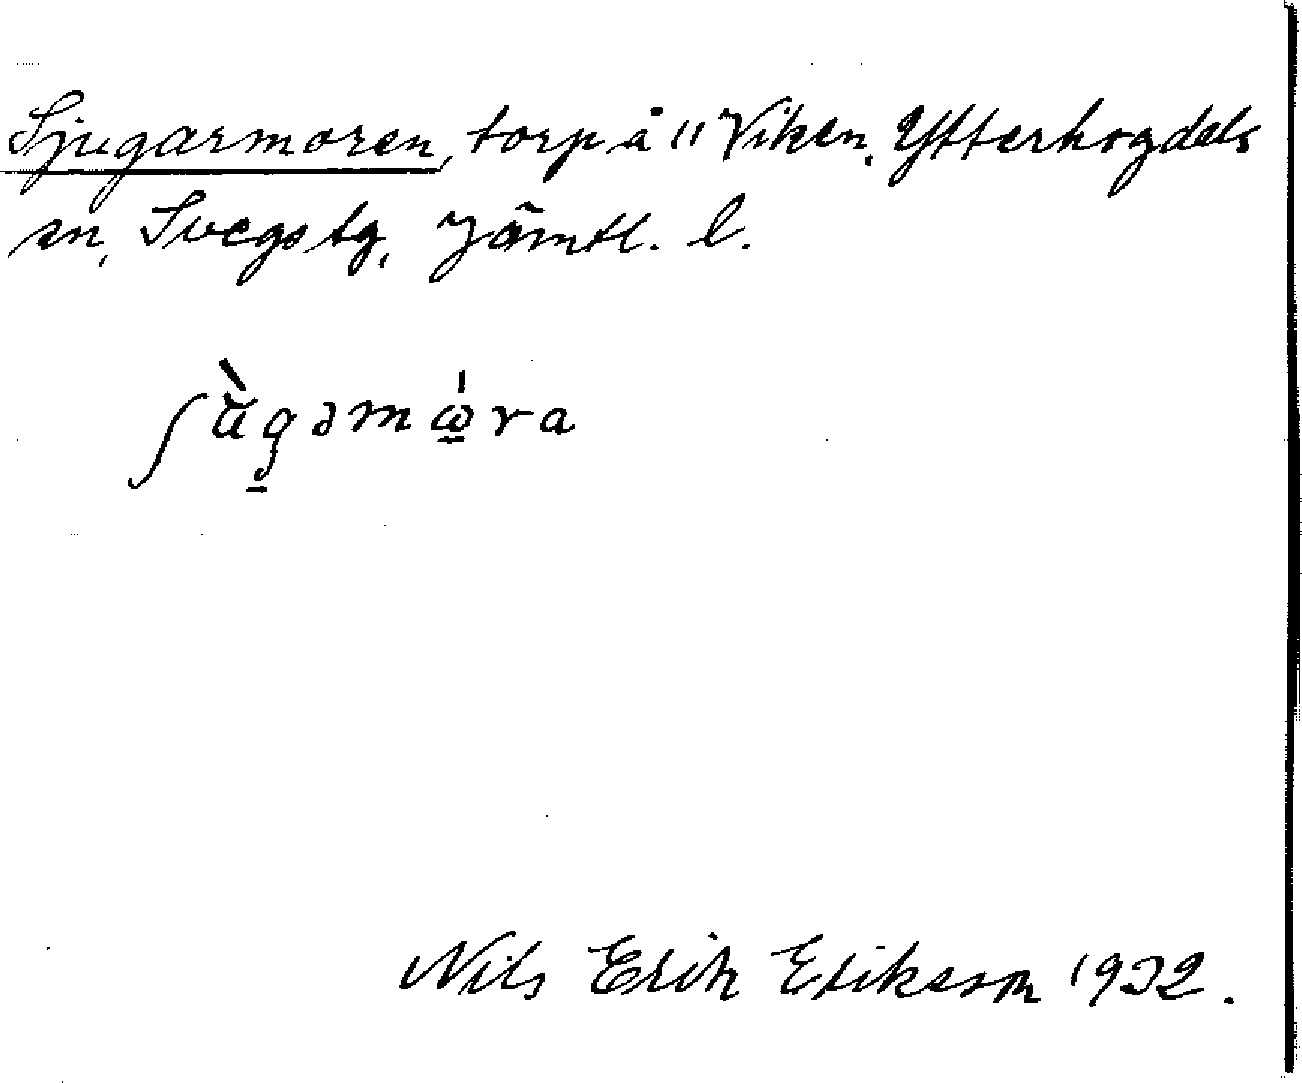 Sjugarmoren, torp å 11 Viken, Ytterhogdals
sn, Svegs tg, Jämtl. l.
ʃùgəmώ̲ra
Nils Erik Eriksson 1932.